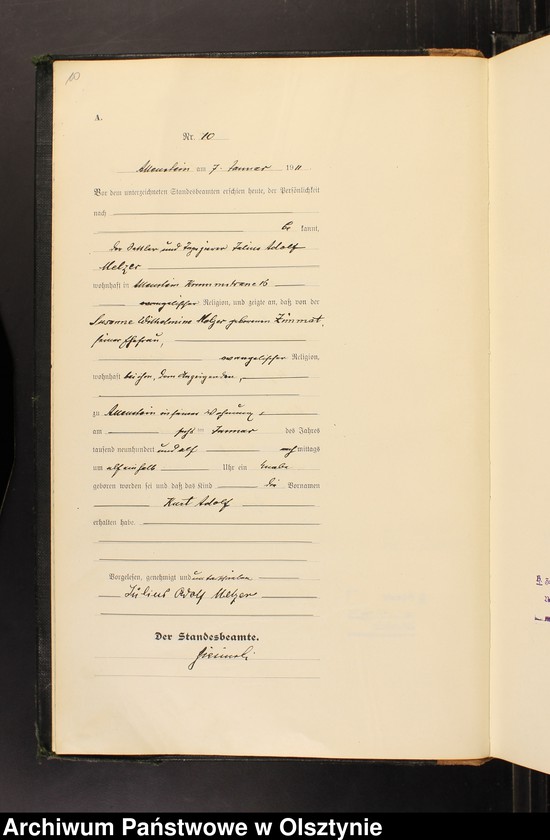 10
A.
Nr. 10
Allenstein am 7. Januar 1911
Vor dem unterzeichneten Standesbeamten erschien heute, der Persönlichkeit
nach
be kannt,
der Sattler und Tapezierer Julius Adolf
Melzer
wohnhaft in Allenstein
evangelischer Religion, und zeigte an, daß von der
Susanne Wilhelmine Melzer geborenen Zimmat,
seiner Ehefrau,
evangelischer Religion,
wohnhaft bei ihm, dem Anzeigenden,
zu Allenstein in seiner Wohnung,
am Januar des Jahres
tausend neunhundert und elf mittags
um Uhr ein Knabe
geboren worden sei und daß das Kind die Vornamen
Kurt Adolf
erhalten habe.
Vorgelesen, genehmigt und unterschrieben
Julius Adolf Melzer
Der Standesbeamte.
Archiwum Państwowe w Olsztynie